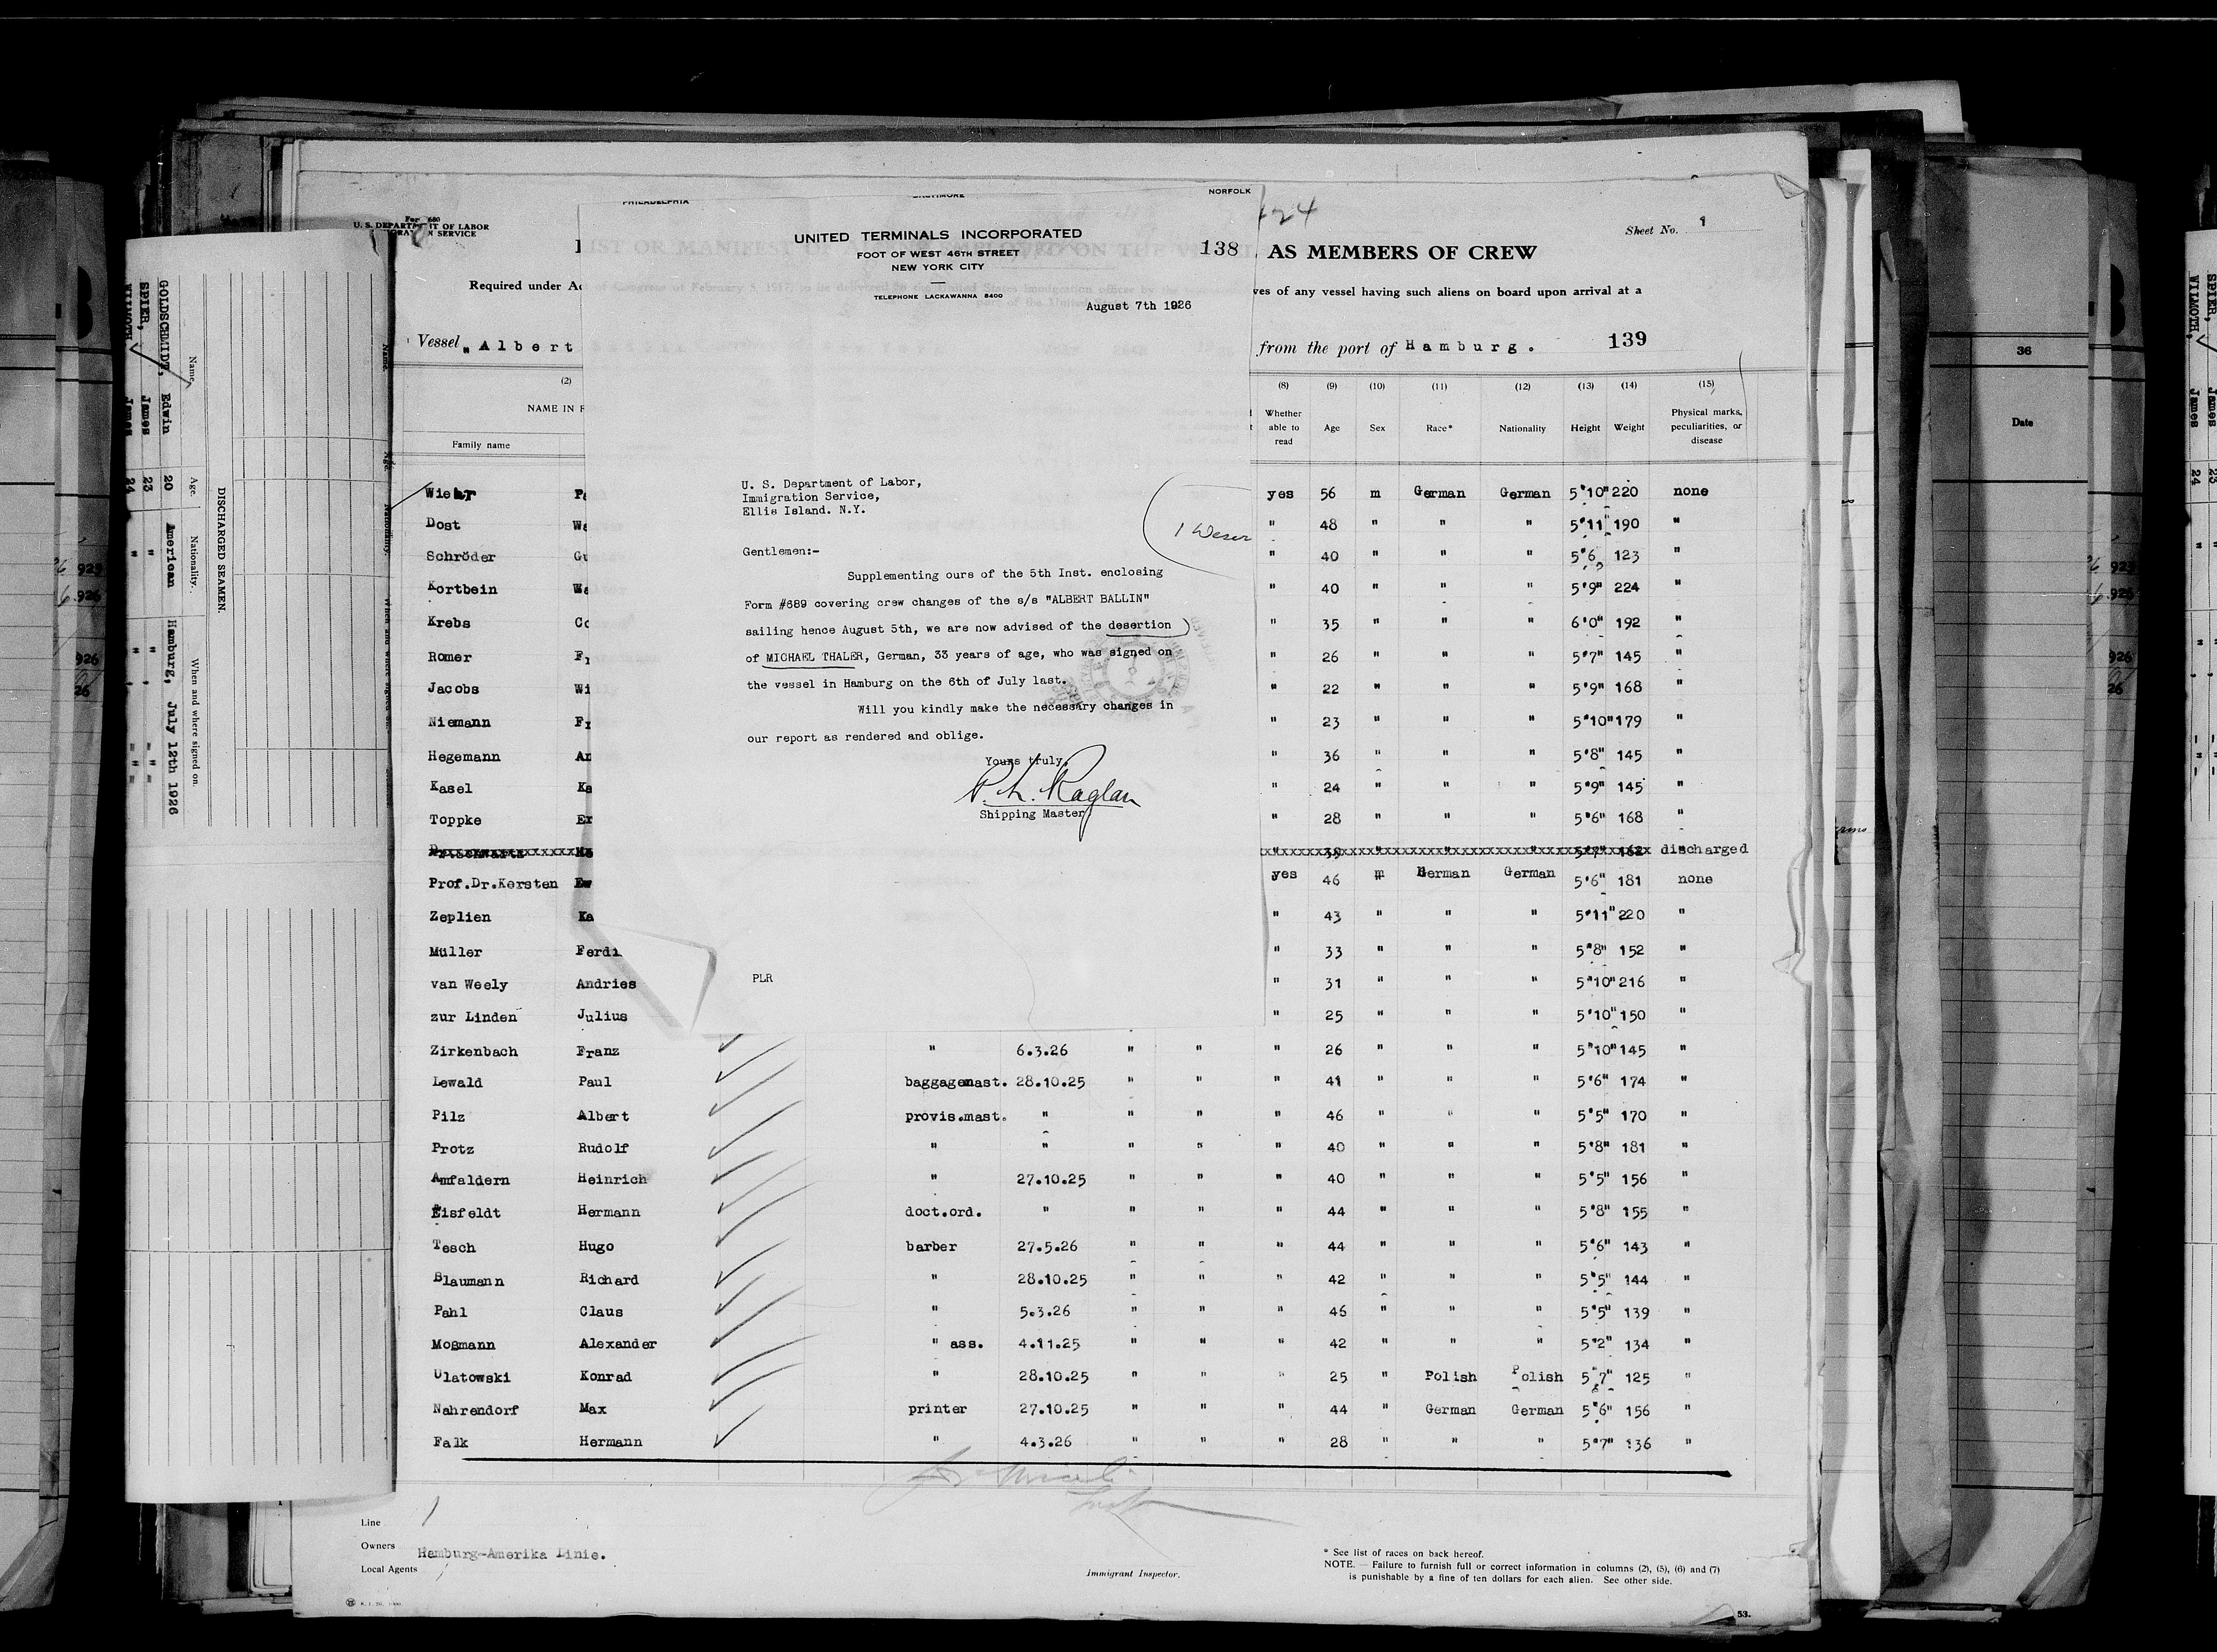 For 680
U. S. DEPARTMENT OF LABOR
SERVICE
124
Sheet No. 1
AS MEMBERS OF CREW
Required under Ac
ves of any vessel having such aliens on board upon arrival at a
Vessel "Albert
from the port of Hamburg.
139
PHILADELPHIA BALTIMORE NORFOLK
UNITED TERMINALS INCORPORATED
138
FOOT OF WEST 46TH STREET
NEW YORK CITY
TELEPHONE LACKAWANNA 8400
August 7th 1926
U. S. Department of Labor,
Immigration Service,
Ellis Island. N.Y.
1 Deser
Gentlemen:-
Supplementing ours of the 5th Inst. enclosing
Form #689 covering crew changes of the s/s "ALBERT BALLIN"
sailing hence August 5th, we are now advised of the desertion
of MICHAEL THALER, German, 33 years of age, who was signed on
the vessel in Hamburg on the 6th of July last.
Will you kindly make the necessary changes in
our report as rendered and oblige.
Yours truly,
P. L. Raglan
Shipping Master
PLR
(2) (8) (9) (10) (11) (12) (13) (14) (15)
NAME IN F
Family name
Whether able to read Age Sex Race* Nationality Height Weight Physical marks, peculiarities, or disease
Wiehr Pa yes 56 m German German 5'10" 220 none
Dost Wa " 48 " " " 5'11" 190 "
Schröder Gu " 40 " " " 5'6 123 "
Kortbein Wa " 40 " " " 5'9" 224 "
Krebs Co " 35 " " " 6'0" 192 "
Romer Fr " 26 " " " 5'7" 145 "
Jacobs Wi " 22 " " " 5'9" 168 "
Niemann Fr " 23 " " " 5'10" 179 "
Hegemann An " 36 " " " 5'8" 145 "
Kasel Ka " 24 " " " 5'9" 145 "
Toppke Er " 28 " " " 5'6" 168 "
discharged
Prof.Dr.Kersten Ew yes 46 m German German 5'6" 181 none
Zeplien Ka " 43 " " " 5'11" 220 "
Müller Ferdi " 33 " " " 5'8" 152 "
van Weely Andries " 31 " " " 5'10" 216 "
zur Linden Julius " 25 " " " 5'10" 150 "
Zirkenbach Franz " 6.3.26 " " " 26 " " " 5'10" 145 "
Lewald Paul baggagemast. 28.10.25 " " " 41 " " " 5'6" 174 "
Pilz Albert provis.mast. " " " " 46 " " " 5'5" 170 "
Protz Rudolf " " " " " 40 " " " 5'8" 181 "
Amfaldern Heinrich " 27.10.25 " " " 40 " " " 5'5" 156 "
Eisfeldt Hermann doct.ord. " " " " 44 " " " 5'8" 155 "
Tesch Hugo barber 27.5.26 " " " 44 " " " 5'6" 143 "
Blaumann Richard " 28.10.25 " " " 42 " " " 5'5" 144 "
Pahl Claus " 5.3.26 " " " 46 " " " 5'5" 139 "
Mogmann Alexander " ass. 4.11.25 " " " 42 " " " 5'2" 134 "
Ulatowski Konrad " 28.10.25 " " " 25 " Polish Polish 5'7" 125 "
Nahrendorf Max printer 27.10.25 " " " 44 " German German 5'6" 156 "
Falk Hermann " 4.3.26 " " " 28 " " " 5'7" 136 "
Line
Owners
Hamburg-Amerika Linie.
Local Agents
Immigrant Inspector.
* See list of races on back hereof.
NOTE. — Failure to furnish full or correct information in columns (2), (5), (6) and (7)
is punishable by a fine of ten dollars for each alien. See other side.
53.
DISCHARGED SEAMEN.
Name. Age. Nationality. When and where signed on.
GOLDSCHMIDT, Edwin 20 American Hamburg, July 12th 1926
SPIER, James 23 " " "
WILMOTH James 24 " " "
36
Date
SPIER, James 23
WILMOTH, James 24